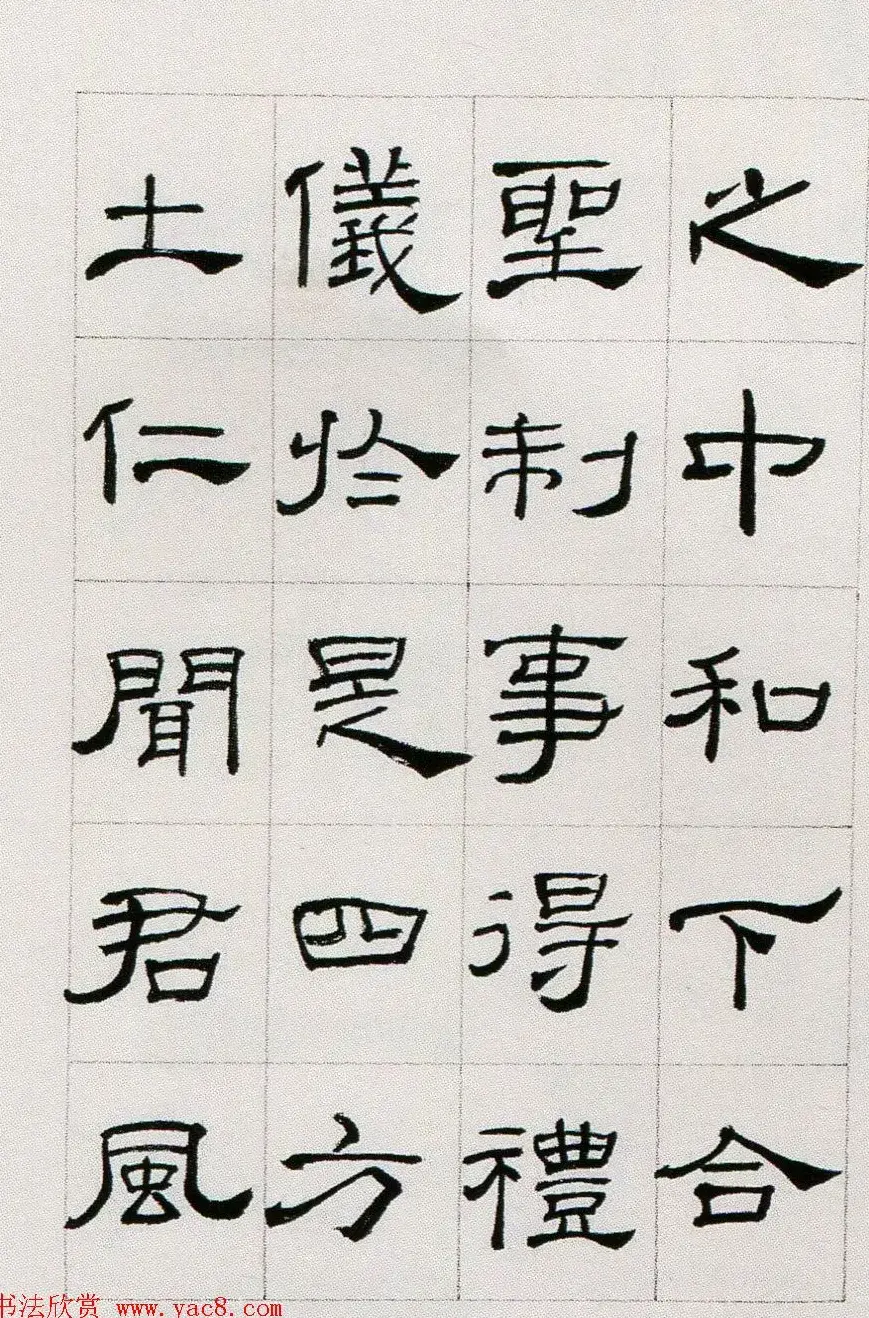 之中和下合
聖制事得禮
儀於是四方
土仁聞君風
书法欣赏 www.yac8.com